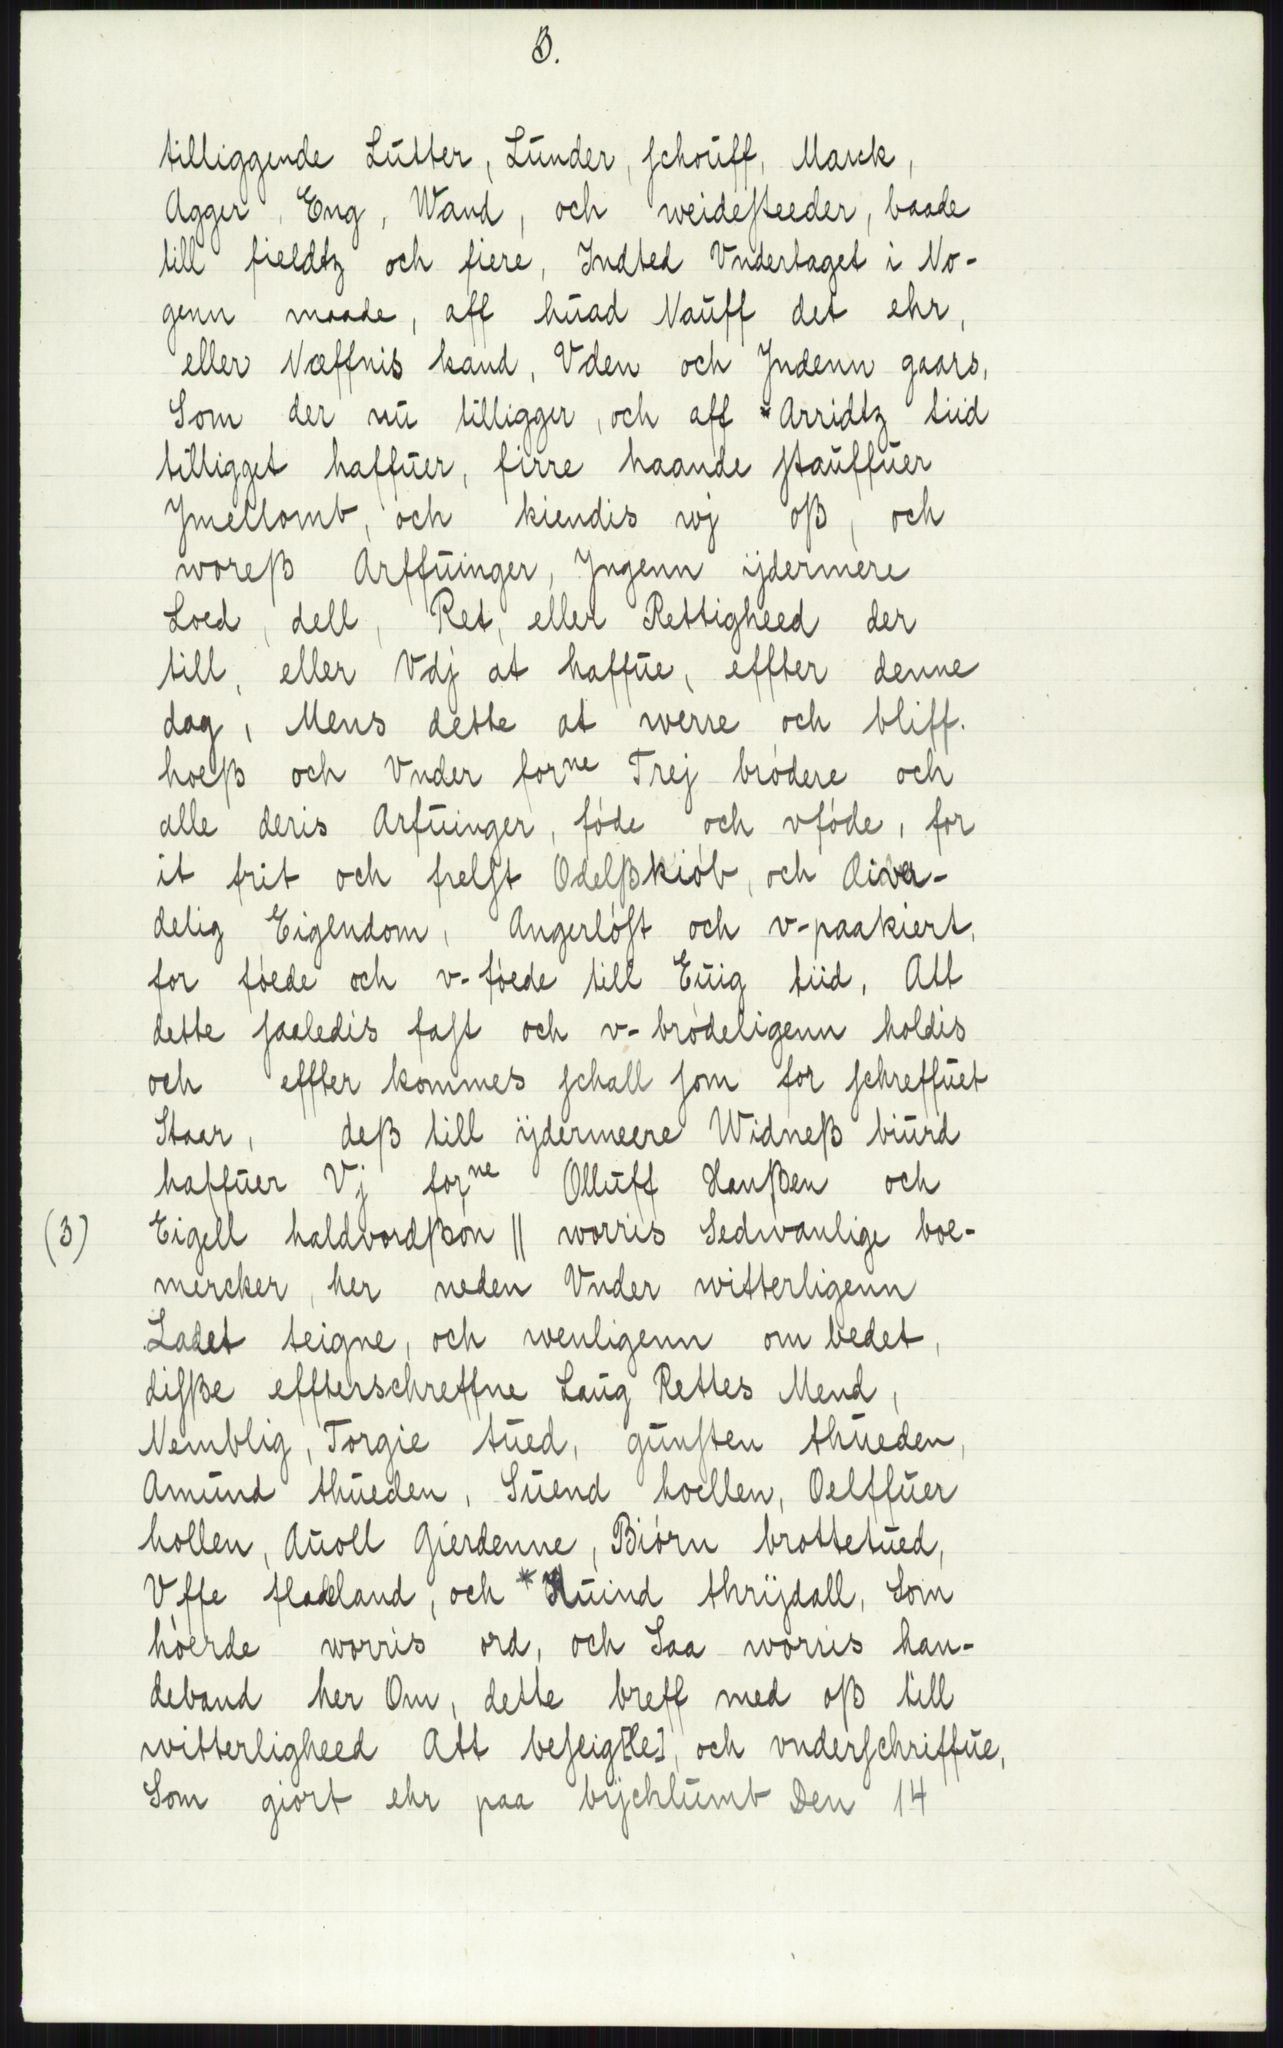 3.
tilliggende Lutter, Lunder, schouff, Marck,
Agger, Eng, Wand, och weidesteeder, baade
till fieldtz och fiere, Indted Vndertaget i No-
genn maade, aff huad Nauff det ehr,
eller Næffnis kand, Vden och Jndenn gaars,
Som der nu tilligger, och aff *Arridtz tiid
tilligget haffuer, firre haande stauffuer
Jmellomb, och kiendis wj oß, och
woreß Arffuinger, Jngenn ijdermere
Loed, dell, Ret, eller Rettigheed der
till, eller Vdj at haffue, effter denne
dag, Mens dette at werre och bliff.
hoeß och Vnder forne Trej brødere och
alle deris Arfuinger, føde och vføde, for
it frit och frelst Odelßkiøb, och Aiva-
delig Eigendom, Angerløst och v-paakiert,
for føede och v-føede till Euig tiid, Att
dette saaledis fast och v-brødeligenn holdis
och effter kommes schall som for schreffuet
Staar, deß till ijdermeere Widneß biurd
haffuer Vj forne Olluff Hanßen och
(3) Eigell haldvordßøn || worris Sedwanlige boe-
mercker, her neden Vnder witterligenn
Ladet teigne, och wenligenn om bedet,
disße effterschreffne Laug Rettes Mend,
Nemblig, Torgie tued, gunsten thueden,
Amund thueden, Suend hoellen, Oelffuer
hollen, Auoll Gierdenne, Biørn brottetued,
Vffe fladeland, och *Huind thrijdall, Som
høerde worris ord, och Saa worris han-
deband her Om, dette breff med oß till
witterligheed Att beseig[le], och vnderschriffue,
Som giort ehr paa bijchlumb Den 14